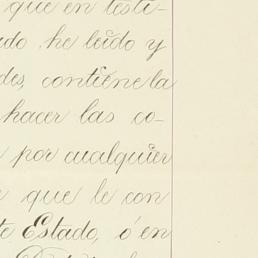 que en testi-
ado he leido y
des, contiene la
hacer las co-
por cualquier
que le con
te Estado, ó en